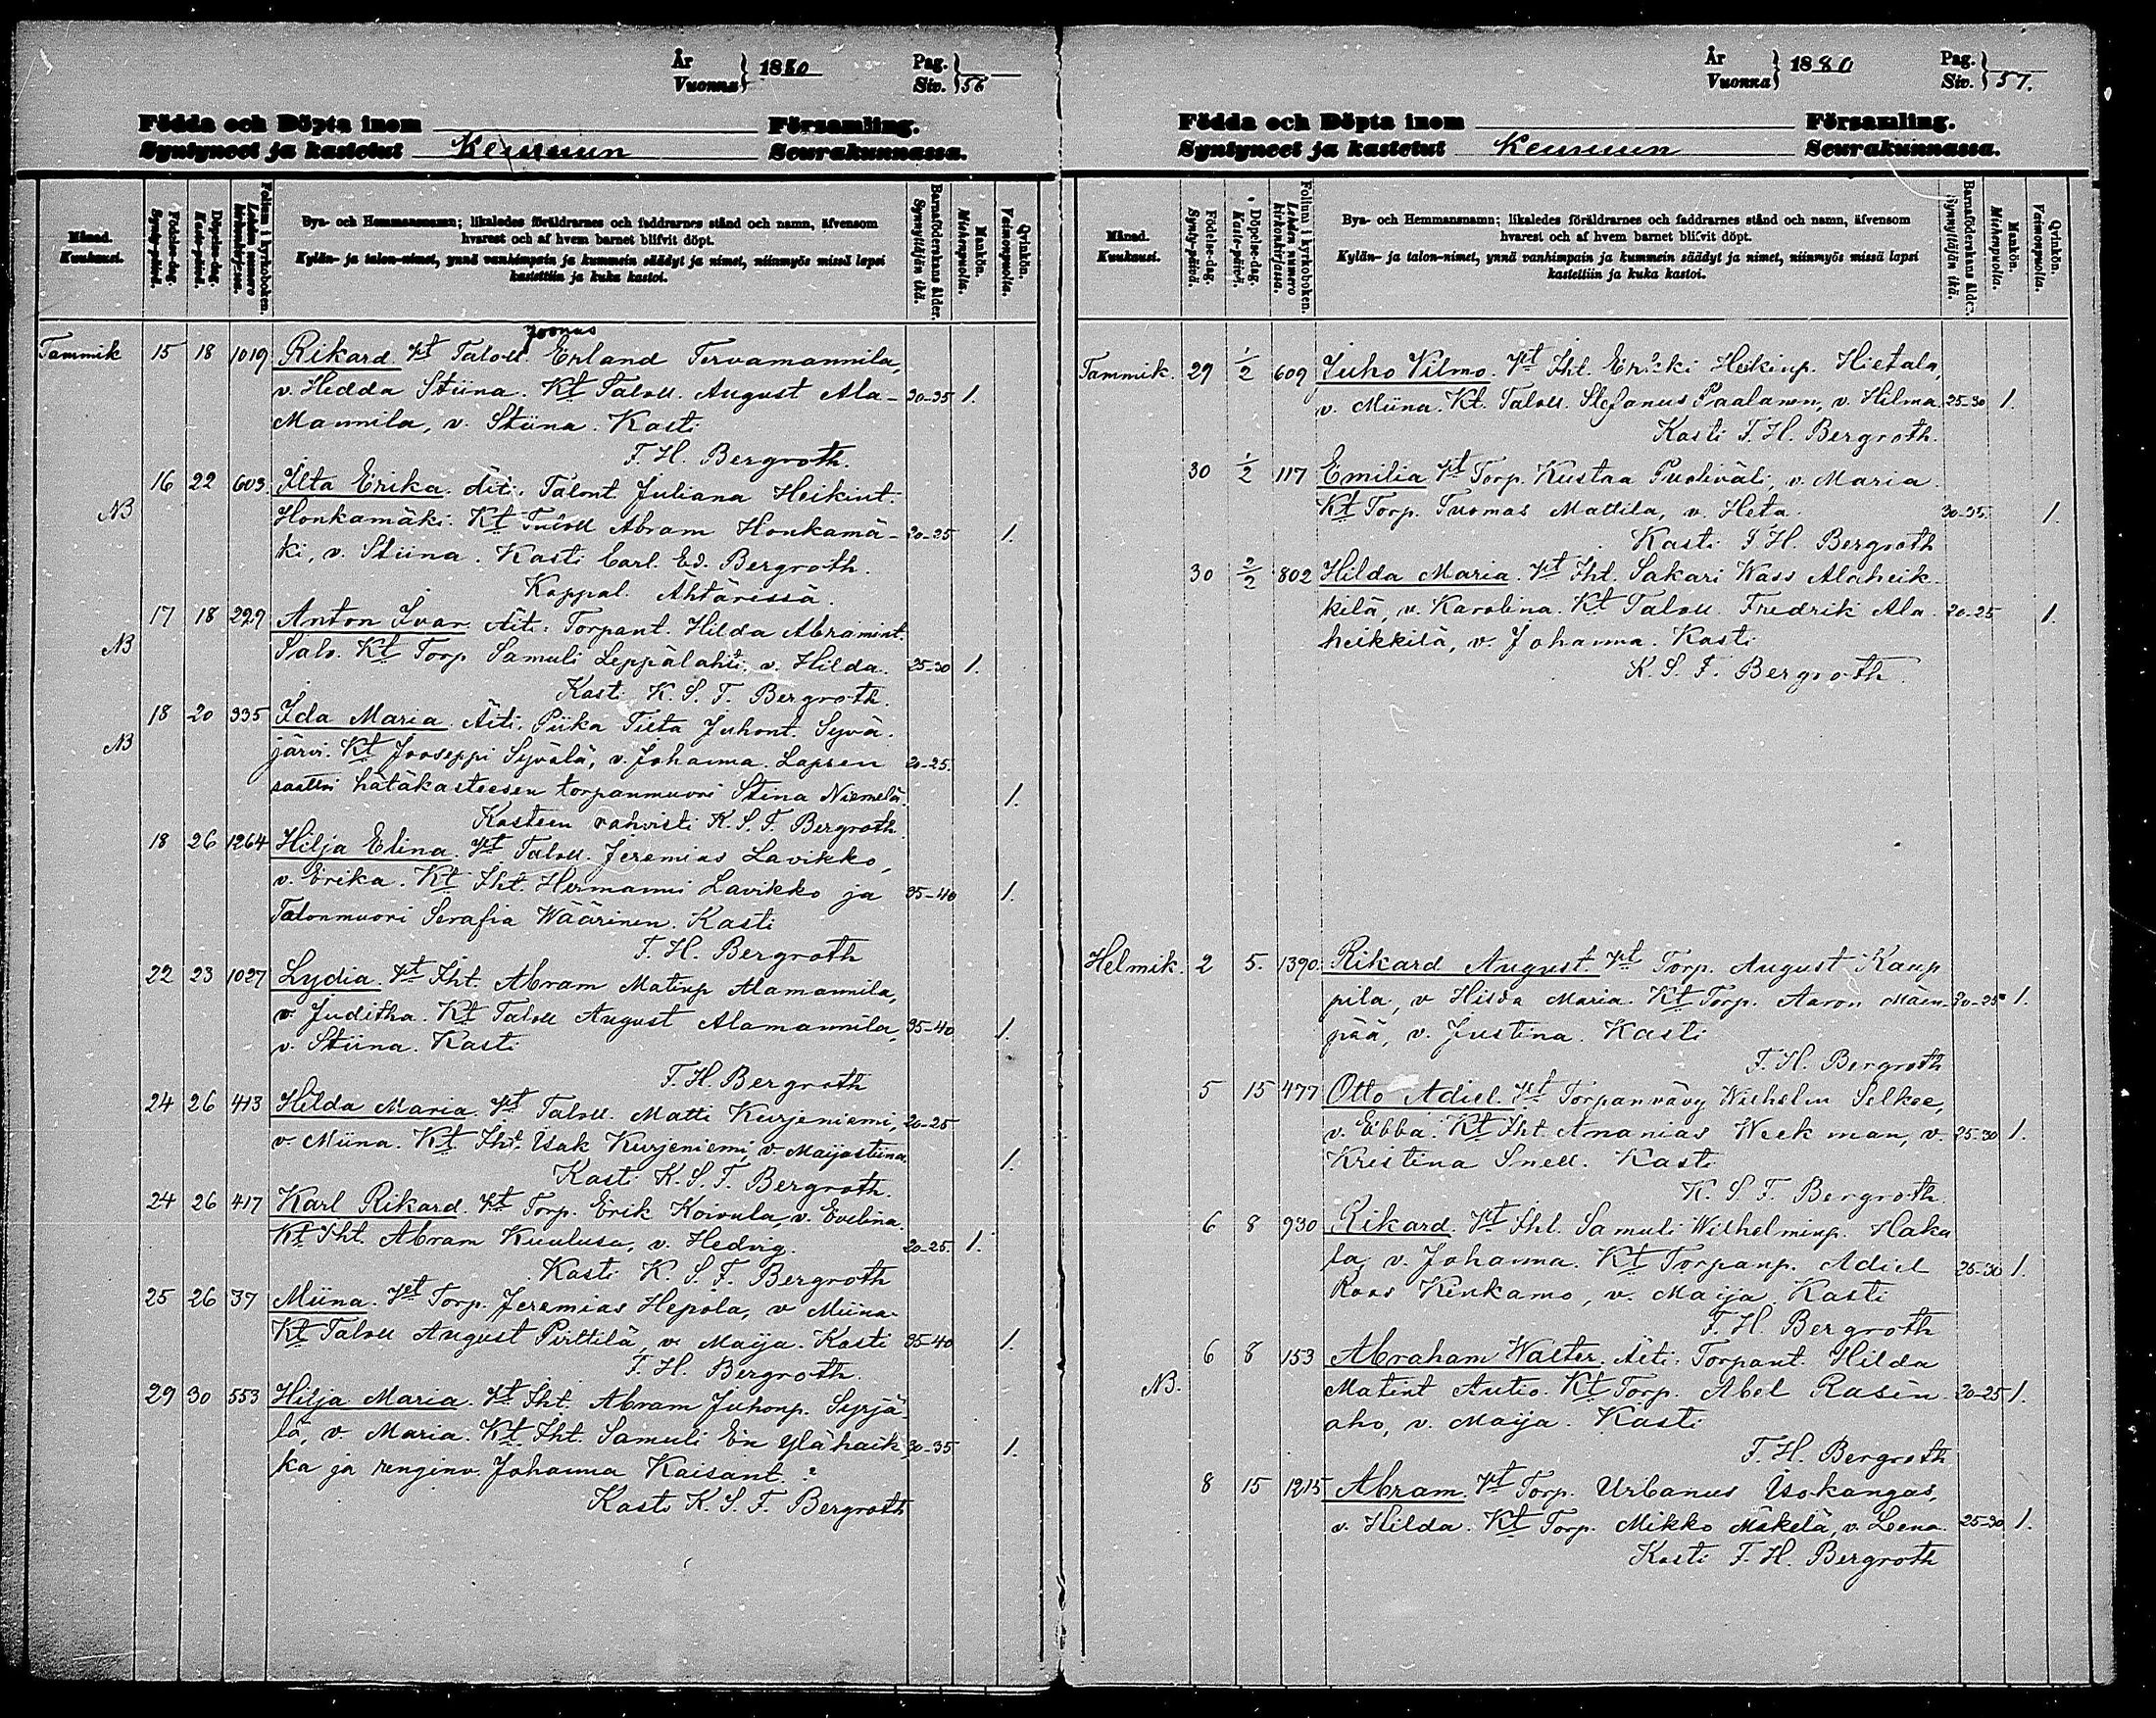 År
Vuonna } 1880
Pag.
Siv. } 56
Födda och Döpta inom Församling.
Syntyneet ja kastetut Keuruun Seurakunnassa.
Månad.
Kuukausi.
Födelse-dag.
Synty-päivä.
Döpelse-dag.
Kaste-päivä.
Folium i kyrkoboken.
Lehden numero kirkonkirjassa.
Bya- och Hemmansnamn; likaledes föräldrarnes och faddrarnes stånd och namn, äfvensom
hvarest och af hvem barnet blifvit döpt.
Kylän- ja talon-nimet, ynnä vanhimpain ja kummein säädyt ja nimet, niinmyös missä lapsi
kastettiin ja kuka kastoi.
Barnaföderskans ålder.
Synnyttäjän ikä.
Mankön.
Miehenpuolia.
Qvinkön.
Vaimonpuolia.
Joonas
Tammik 15 18 1019 Rikard. Vt Taloll. Erland Tervamannila,
v. Hedda Stiina. Kt Taloll. August Ala- 30-35 1.
Mannila, v. Stiina. Kasti
F. H. Bergroth.
16 22 603. Ilta Erika. Äiti: Talont. Juliana Heikint.
NB Honkamäki. Kt Taloll Abram Honkamä- 20-25 1.
ki, v. Stiina. Kasti Carl Ed. Bergroth.
Kappal. Ähtärissä.
17 18 229 Anton Ivar. Äiti: Torpant. Hilda Abramint.
NB Salo. Kt Torp Samuli Leppälahti, v. Hilda. 25-30 1.
Kasti K. S. F. Bergroth.
18 20 335 Ida Maria. Äiti: Piika Tilta Juhont. Syvä-
NB järvi. Kt Jooseppi Syvälä, v. Johanna. Lapsen 20-25.
saattoi hätäkasteesen torpanmuori Stina Niemelä. 1.
Kasteen vahvisti K. S. F. Bergroth.
18 26 1264 Hilja Elina. Vt Taloll. Jeremias Lavikko,
v. Erika. Kt Iht. Hermanni Lavikko ja 35-40 1.
Talonmuori Serafia Wäärinen. Kasti
F. H. Bergroth
22 23 1027 Lydia. Vt Iht. Abram Matinp Alamannila,
v. Juditha. Kt Taloll August Alamannila, 35-40 1.
v. Stiina. Kasti
F. H. Bergroth
24 26 413 Hilda Maria. Vt Taloll. Matti Kurjeniemi, 20-25
v. Miina. Kt Iht. Isak Kurjeniemi, v. Maijastiina. 1.
Kasti K. S. F. Bergroth.
24 26 417 Karl Rikard. Vt Torp. Erik Koivula, v. Evelina.
Kt Iht. Abram Kuulusa, v. Hedvig. 20-25. 1.
Kasti K. S. F. Bergroth
25 26 37 Miina. Vt Torp. Jeremias Hepola, v Miina.
Kt Taloll August Pirttilä, v. Maija. Kasti 35-40 1.
F. H. Bergroth.
29 30 553 Hilja Maria. Vt Iht. Abram Juhonp. Syrjä-
lä, v Maria. Kt Iht. Samuli Ylähaik 30-35 1.
ka ja renginv. Johanna Kaisant.
Kasti K. S. F. Bergroth
År
Vuonna } 1880
Pag.
Siv. } 57.
Födda och Döpta inom Församling.
Syntyneet ja kastetut Keuruun Seurakunnassa.
Månad.
Kuukausi.
Födelse-dag.
Synty-päivä.
Döpelse-dag.
Kaste-päivä.
Folium i kyrkoboken.
Lehden numero kirkonkirjassa.
Bya- och Hemmansnamn; likaledes föräldrarnes och faddrarnes stånd och namn, äfvensom
hvarest och af hvem barnet blifvit döpt.
Kylän- ja talon-nimet, ynnä vanhimpain ja kummein säädyt ja nimet, niinmyös missä lapsi
kastettiin ja kuka kastoi.
Barnaföderskans ålder.
Synnyttäjän ikä.
Mankön.
Miehenpuolia.
Qvinkön.
Vaimonpuolia.
Tammik. 29 1/2 609 Juho Vilmo. Vt Iht. Erkki Heikinp. Hietala,
v. Miina. Kt. Taloll. Stefanus Paalanen, v. Hilma 25-30 1.
Kasti F. H. Bergroth.
30 1/2 117 Emilia Vt Torp. Kustaa Puoliväli, v. Maria.
Kt Torp. Tuomas Mattila, v. Heta. 30-35. 1.
Kasti F. H. Bergroth
30 2/2 802 Hilda Maria. Vt Iht. Sakari Wass Alaheik-
kilä, v. Karolina. Kt Taloll. Fredrik Ala- 20-25 1.
heikkilä, v. Johanna. Kasti
K. S. F. Bergroth.
Helmik. 2 5. 1390. Rikard August. Vt Torp. August Kaup
pila, v Hilda Maria. Kt Torp. Aaron Mäen- 20-25 1.
pää, v. Justina. Kasti
F. H. Bergroth
5 15 477 Otto Adiel. Vt Torpanvävy Wilhelm Selkee,
v. Ebba. Kt Iht. Ananias Weekman, v. 25-30 1.
Kristina Snell. Kasti
K. S. F. Bergroth.
6 8 930 Rikard. Vt Iht. Samuli Wilhelminp. Haka
la, v. Johanna. Kt Torpanp. Adiel 25-30 1.
Roos Kenkamo, v. Maija. Kasti
F. H. Bergroth
6 8 153 Abraham Walter. Äiti: Torpant. Hilda
NB. Matint Autio. Kt Torp. Abel Rasin- 20-25 1.
aho, v. Maija. Kasti
F. H. Bergroth
8 15 1215 Abram. Vt Torp. Urbanus Isokangas,
v. Hilda. Kt Torp. Mikko Mäkelä, v. Leena. 25-30 1.
Kasti F. H. Bergroth